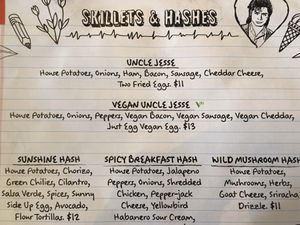 SKILLETS & HASHES
UNCLE JESSE
House Potatoes, Onions, Ham, Bacon, Sausage, Cheddar Cheese,
Two Fried Eggs. $11
VEGAN UNCLE JESSE
House Potatoes, Onions, Peppers, Vegan Bacon, Vegan Sausage, Vegan Cheddar,
Just Egg Vegan Egg. $13
SUNSHINE HASH
House Potatoes, Chorizo,
Green Chilies, Cilantro,
Salsa Verde, Spices, Sunny
Side Up Egg, Avocado,
Flour Tortillas. $12
SPICY BREAKFAST HASH
House Potatoes, Jalapeno
Peppers, Onions, Shredded
Chicken, Pepper-jack
Cheese, Yellowbird
Habanero Sour Cream,
WILD MUSHROOM HASH
House Potatoes,
Mushrooms, Herbs,
Goat Cheese, Sriracha
Drizzle. $11